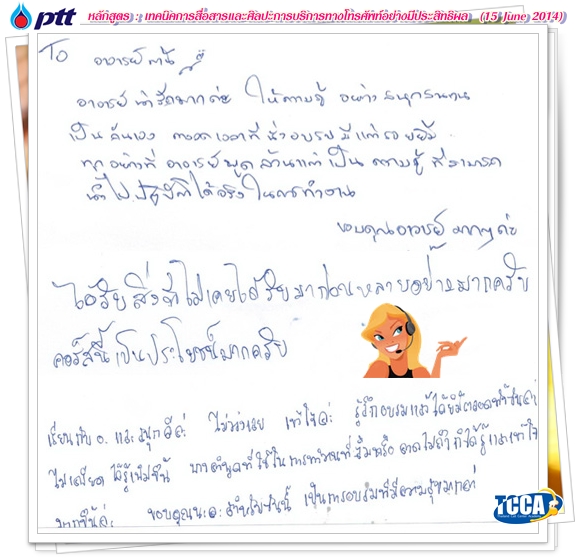 ptt หลักสูตร : เทคนิคการสื่อสารและศิลปะการบริการทางโทรศัพท์อย่างมีประสิทธิผล (15 June 2014)
TO อาจารย์
อาจารย์น่ารักมากค่ะ ให้ความรู้ อย่างสนุกสนาน
เป็นกันเอง ตลอดเวลาที่นั่งอบรมมีแต่รอยยิ้ม
ทุกอย่างที่อาจารย์พูดล้วนแต่เป็นความรู้ ที่สามารถ
นำไปปฏิบัติได้จริงในการทำงาน
ขอบคุณอาจารย์ มากๆค่ะ
ได้รับสิ่งที่ไม่เคยได้รับมาก่อนหลายอย่างมากครับ
คอร์สนี้เป็นประโยชน์มากครับ
เรียนกับ อ. แล้วสนุกดีค่ะ ไม่ง่วงเลย เข้าใจค่ะ รู้สึกอบรมแล้วได้ยิ้มตลอดทั้งวันค่ะ
ไม่เครียด ได้รู้เพิ่มขึ้น บางคำพูดที่ใช้ในการทำงานที่ลืมหรือ อาจไม่ก็ได้รู้และเข้าใจ
มากขึ้นค่ะ ขอบคุณนะคะสำหรับวันนี้ เป็นการอบรมที่มีความสุขมากค่ะ
TCCA